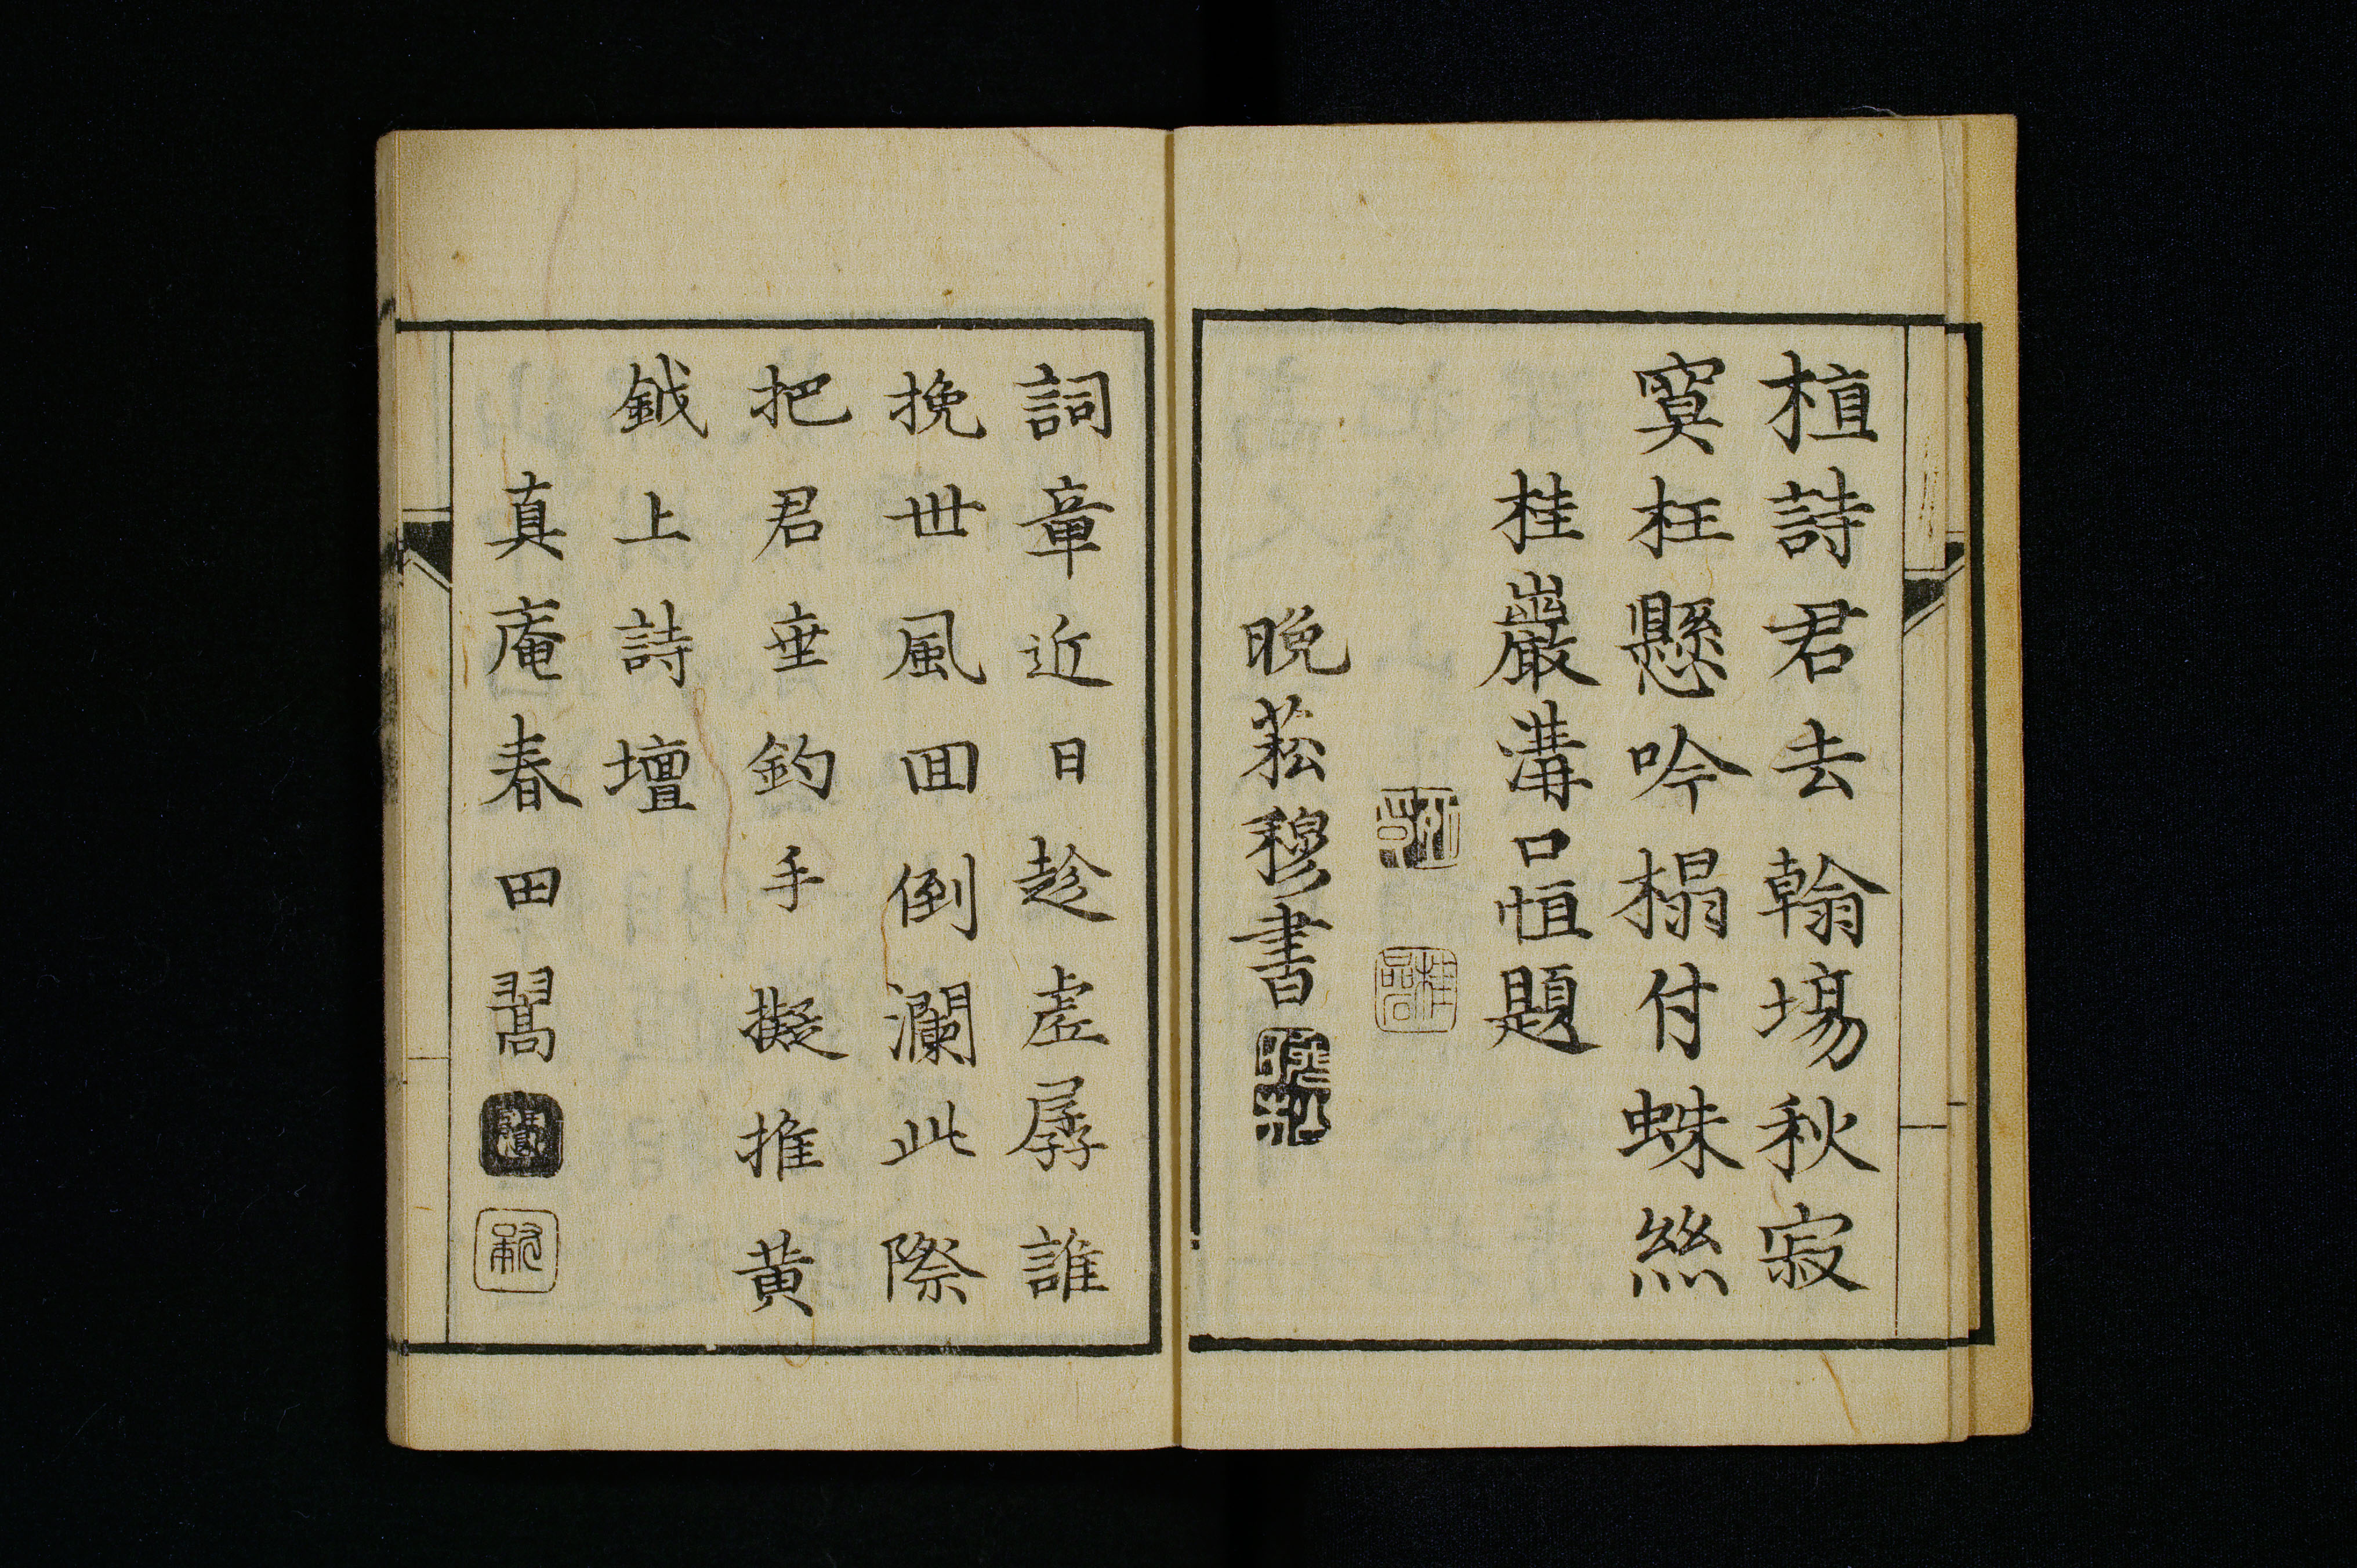 植詩君去翰場秋寂
寞枉懸吟榻付蛛絲
桂巖溝口恒題
晩菘穆書
詞章近日趁虛孱誰
挽世風回倒瀾此際
把君垂釣手擬推黄
鉞上詩壇
真庵春田翯